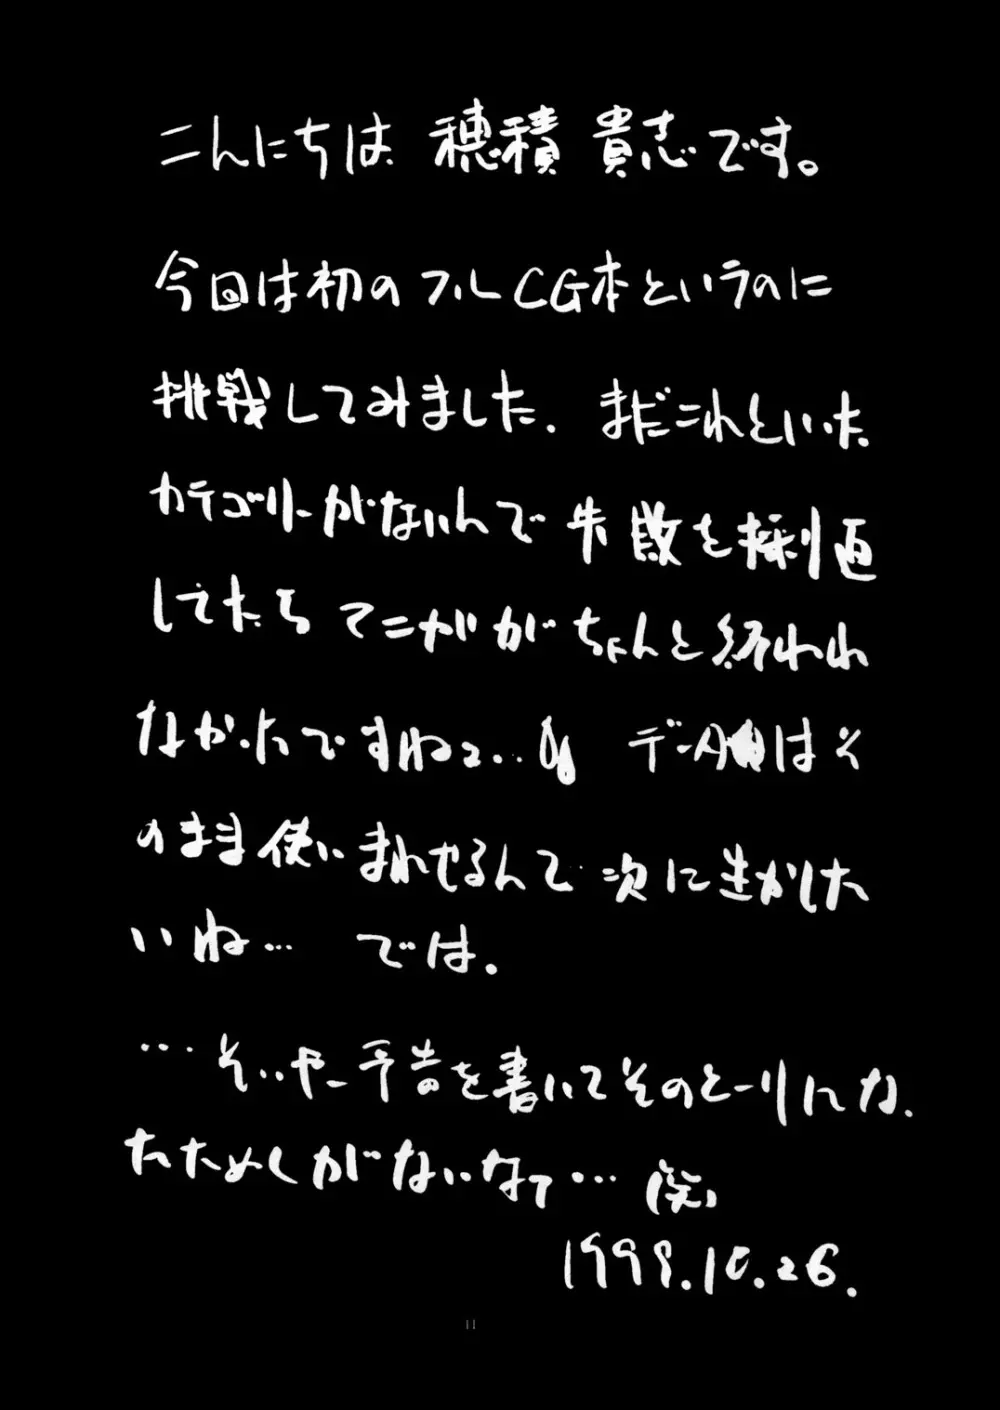 こんにちは 穂積 貴志です。
今回は初のフルCG本というのに
挑戦してみました. まだこれといった
カテゴリーがないんで 失敗を採り直
してたら マニがが ちょんと 終われ
なかったですねェ… データは そ
のまま 使いまわせるんで 次に生かした
いね… では.
…そいやー 予告を書いてそのとーりにな.
たためしがないなァ… (笑)
1999.10.26.
11